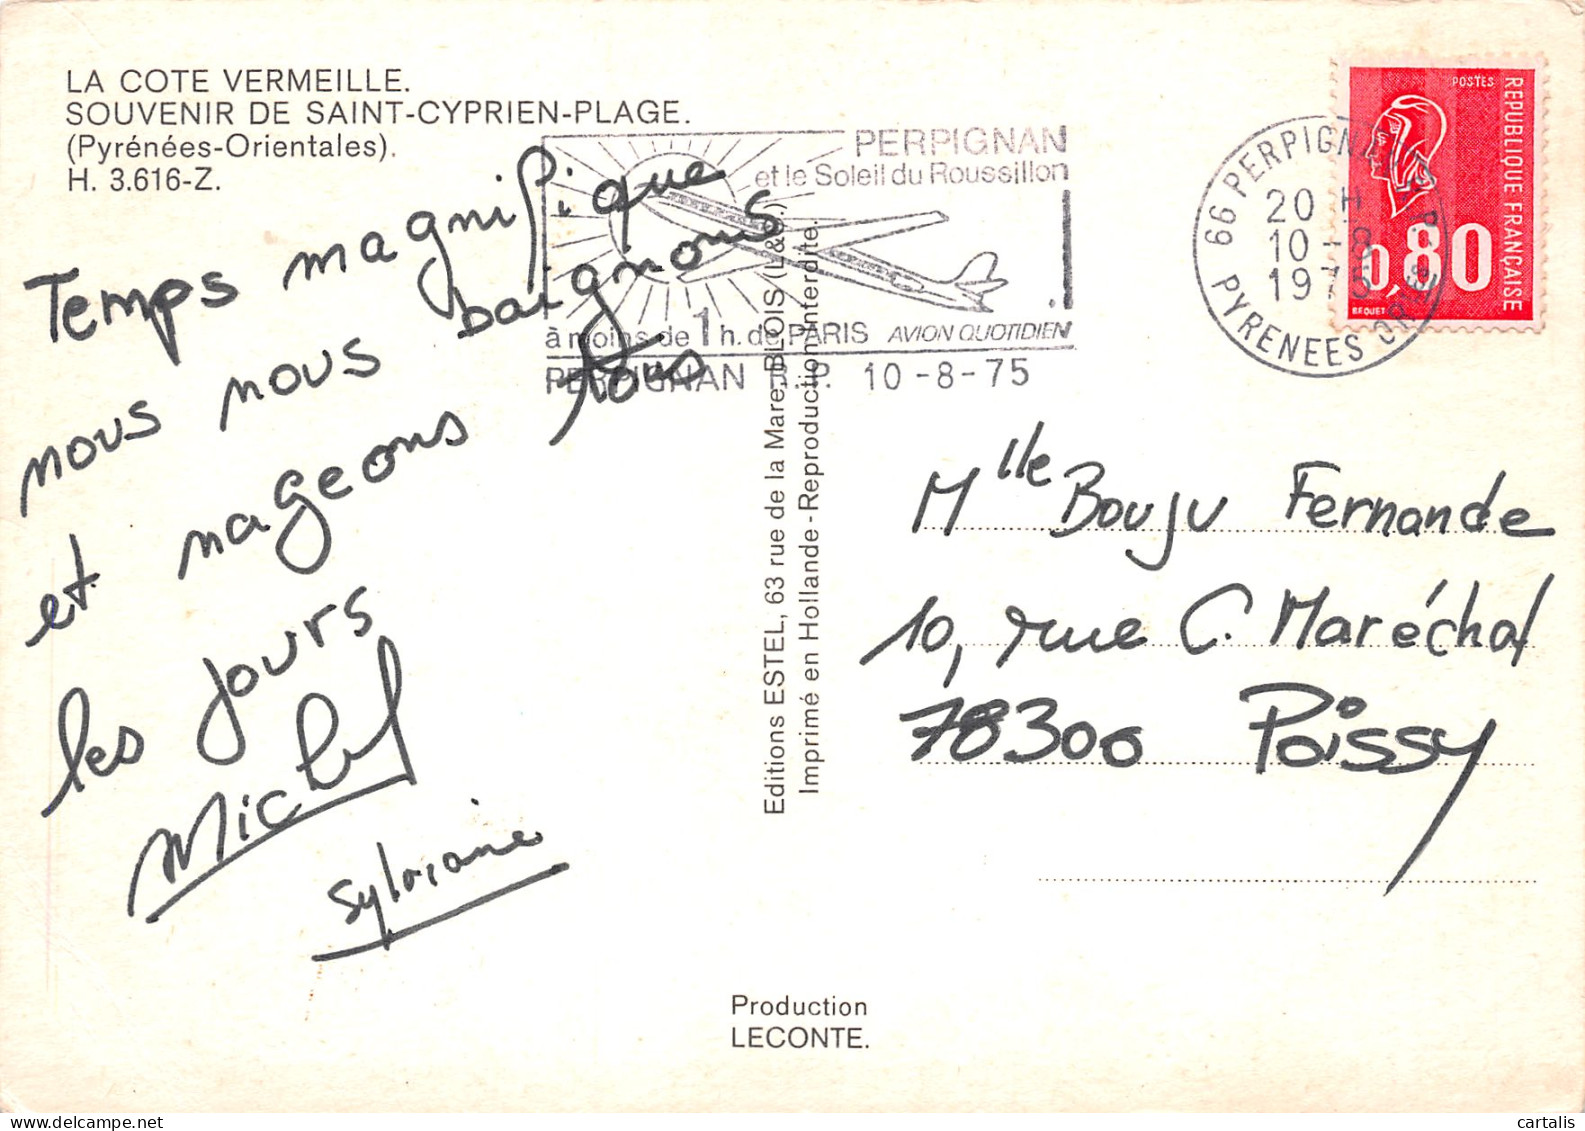 LA COTE VERMEILLE.
SOUVENIR DE SAINT-CYPRIEN-PLAGE.
(Pyrénées-Orientales).
H. 3.616-Z.
Temps magnifique
nous nous baignons
et nageons tous
les jours
Michel
Sylviane
PERPIGNAN
et le Soleil du Roussillon
à moins de 1 h. de PARIS AVION QUOTIDIEN
PERPIGNAN R.P. 10-8-75
Editions ESTEL, 63 rue de la Mare, BLOIS (L&C.)
Imprimé en Hollande-Reproduction Interdite.
66 PERPIGNAN R.P.
20 H
10-8
1975
PYRENEES ORles
POSTES
REPUBLIQUE FRANÇAISE
0,80
BEQUET
Mlle Bouju Fernande
10, rue C. Maréchal
78300 Poissy
Production
LECONTE.
cartalis
delcampe.net